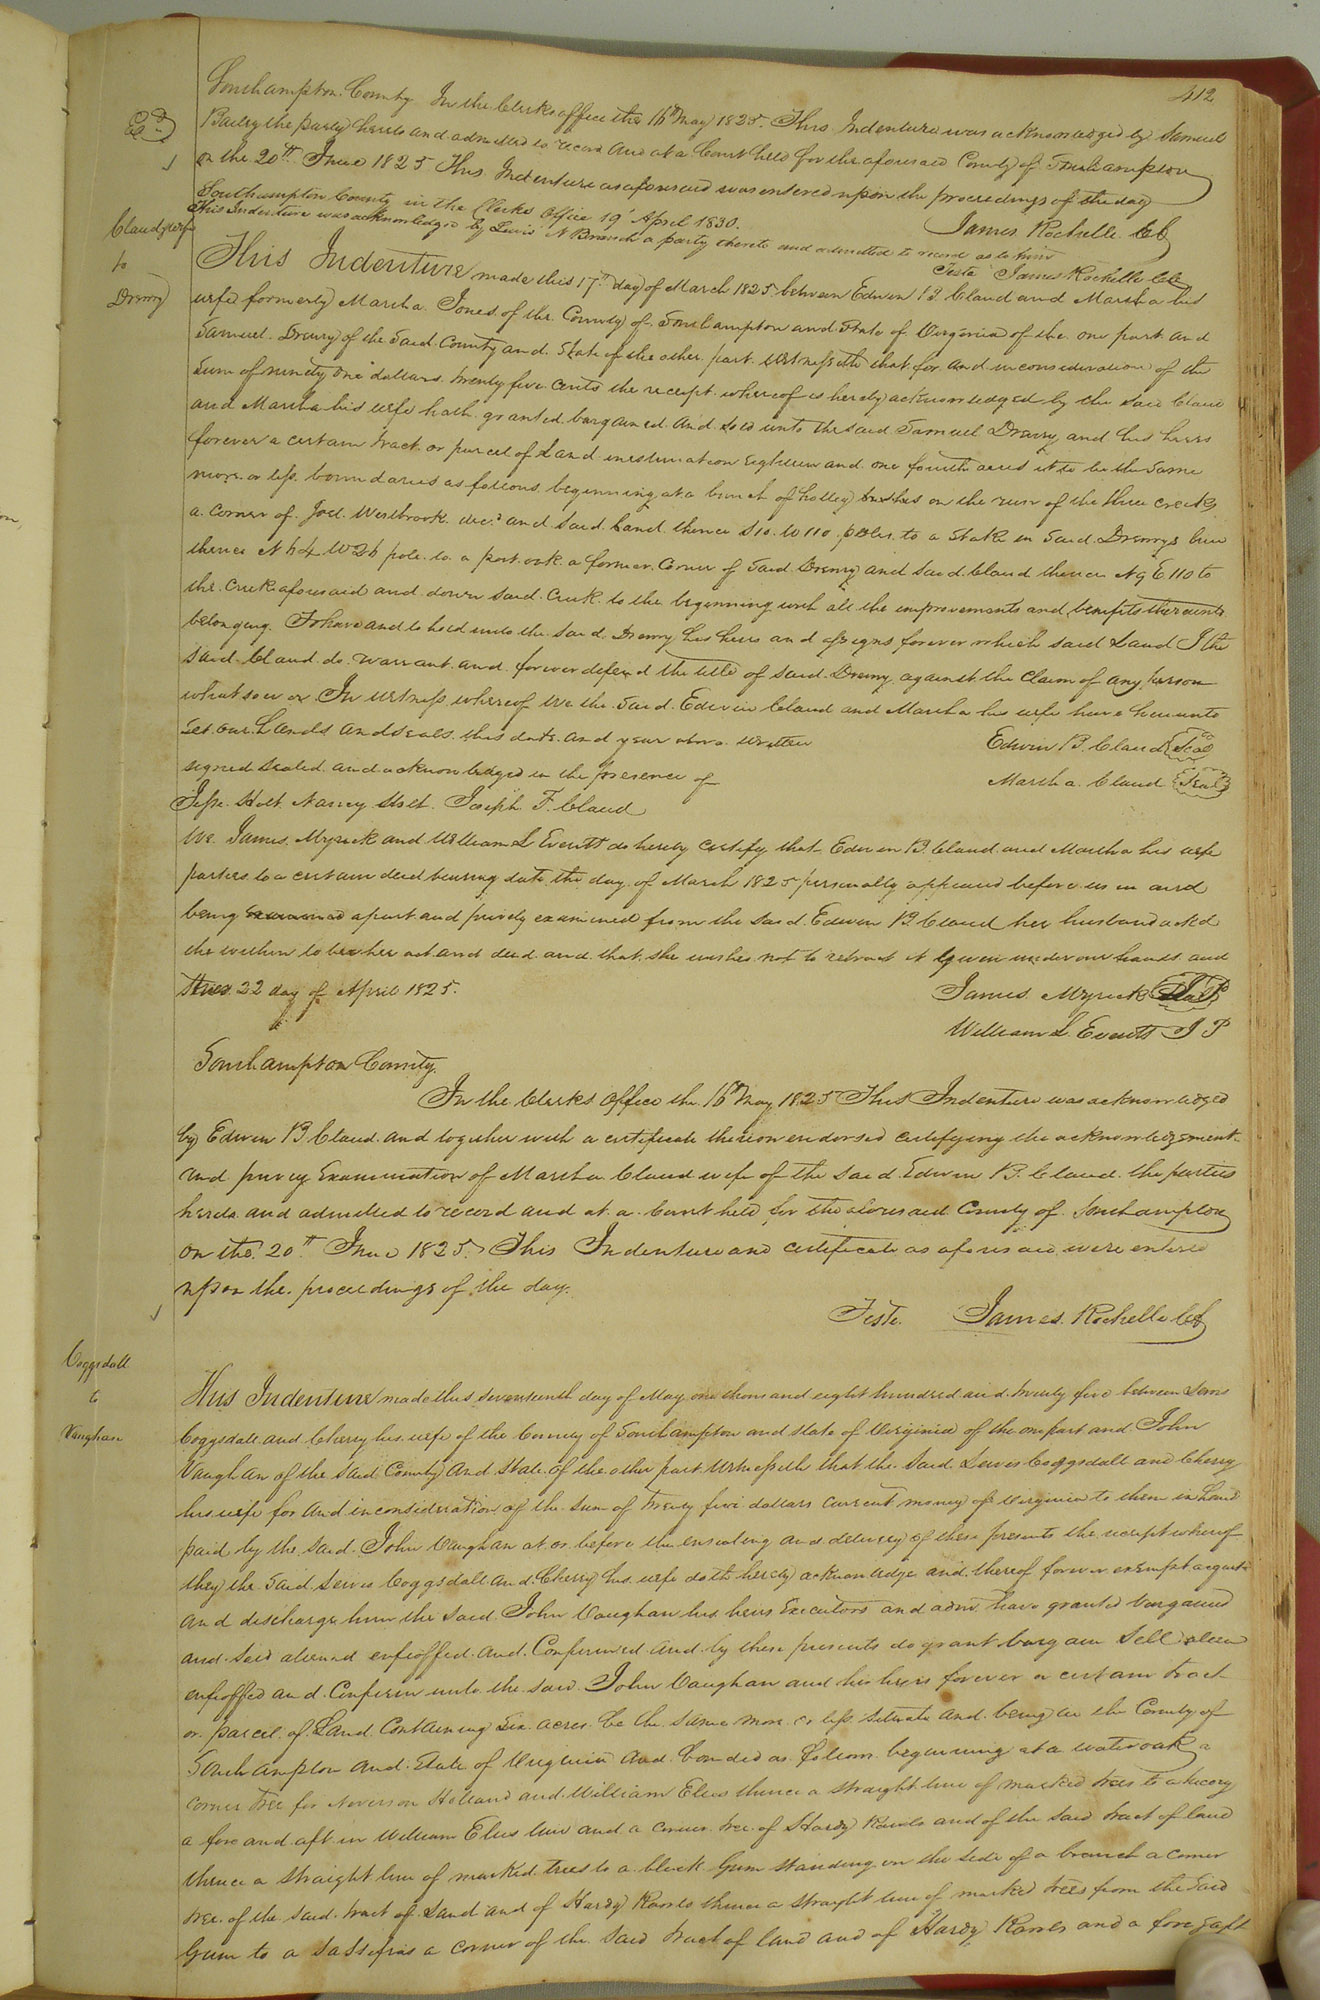 412
Southampton County In the Clerks office the 16th May 1825. This Indenture was acknowledged by Samuel
Bailey the party hereto and admitted to record And at a Court held for the aforesaid County of Southampton
on the 20th June 1825 This Indenture as aforesaid was entered upon the proceedings of the day
Southampton County in the Clerks Office 19' April 1830.
James Rochelle CC
This Indenture was acknowledged by Lewis N Branch a party thereto and admitted to record as to him
Teste James Rochelle CC
Exd
Claud & wife
to
Drewry
This Indenture made this 17th day of March 1825 between Edwin B. Claud and Martha his
wife formerly Martha Jones of the County of Southampton and State of Virginia of the one part and
Samuel Drewry of the Said County and State of the other part witnesseth that for and in consideration of the
Sum of ninety one dollars twenty five cents the receipt whereof is hereby acknowledged by the said Claud
and Martha his wife hath granted bargained and sold unto the said Samuel Drewry and his heirs
forever a certain tract or parcel of Land inestimation Eighteen and one fourth acres it to be the Same
more or less boundaries as follows beginning at a bunch of holley bushes on the run of the three creeks
a corner of Joel Westbrook decd and said Land thence S10 W 110 poles to a Stake in Said Drewrys line
thence N 64 W 26 pole to a post oak a former Corner of Said Drewry and said Claud thence N9 E 110 to
the Creek aforesaid and down said Creek to the beginning with all the improvements and benefits thereunto
belonging To have and to hold unto the said Drewry his heirs and assigns forever which said Land I the
said Claud do warrant and forever defend the title of said Drewry against the Claim of any person
whatsoever In witness whereof we the Said Edwin Claud and Martha his wife have hereunto
Set our Hands and seals this date and year above written
Edwin B. Claud Seal
signed sealed and acknowledged in the presence of
Martha Claud Seal
Jesse Holt Nancy Holt Joseph F. Claud
We James Myrick and William L Everitt do hereby certify that Edwin B. Claud and Martha his wife
parties to a certain deed bearing date the day of March 1825 personally appeared before us in and
being examined apart and privily examined from the said Edwin B Claud her husband ackd
the within to be her act and deed and that she wishes not to retract it Given under our hands and
this 22 day of April 1825.
James Myrick JP
William L. Everitt J P
Southampton County.
In the Clerks Office the 16th May 1825 This Indenture was acknowledged
by Edwin B Claud and together with a certificate thereon endorsed certifying the acknowledgement
and privy Examination of Martha Claud wife of the said Edwin B. Claud the parties
hereto and admitted to record and at a Court held for the aforesaid County of Southampton
on the 20th June 1825. This Indenture and certificate as aforesaid were entered
upon the proceedings of the day.
Teste. James Rochelle CC
Coggsdall
to
Vaughan
This Indenture made this seventeenth day of May one thousand eight hundred and twenty five between Lewis
Coggsdall and Cherry his wife of the County of Southampton and state of Virginia of the one part and John
Vaughan of the said County and State of the other part Witnesseth that the Said Lewis Coggsdall and Cherry
his wife for and in consideration of the sum of twenty five dollars current money of Virginia to them in hand
paid by the said John Vaughan at or before the ensealing and delivery of these presents the receipt whereof
they the Said Lewis Coggsdall and Cherry his wife doth hereby acknowledge and thereof forever exempt acquit
and discharge him the said John Vaughan his heirs Executors and adm. have granted bargained
and sold aliened enfeoffed and Confirmed and by these presents do grant bargain Sell alien
enfeoffed and Confirm unto the said John Vaughan and his heirs forever a certain tract
or parcel of Land Containing Six acres be the same more or less situate and being in the County of
Southampton and State of Virginia and bounded as follows beginning at a water oak a
corner tree for Noverson Holland and William Elus thence a straight line of marked trees to a hicory
a fore and aft in William Elus line and a corner tree of Hardy and of the said tract of land
thence a straight line of marked trees to a black Gum standing on the side of a branch a corner
tree of the said tract of Land and of Hardy thence a straight line of marked trees from the Said
Gum to a Sassifras a corner of the said tract of land and of Hardy and a fore & aft